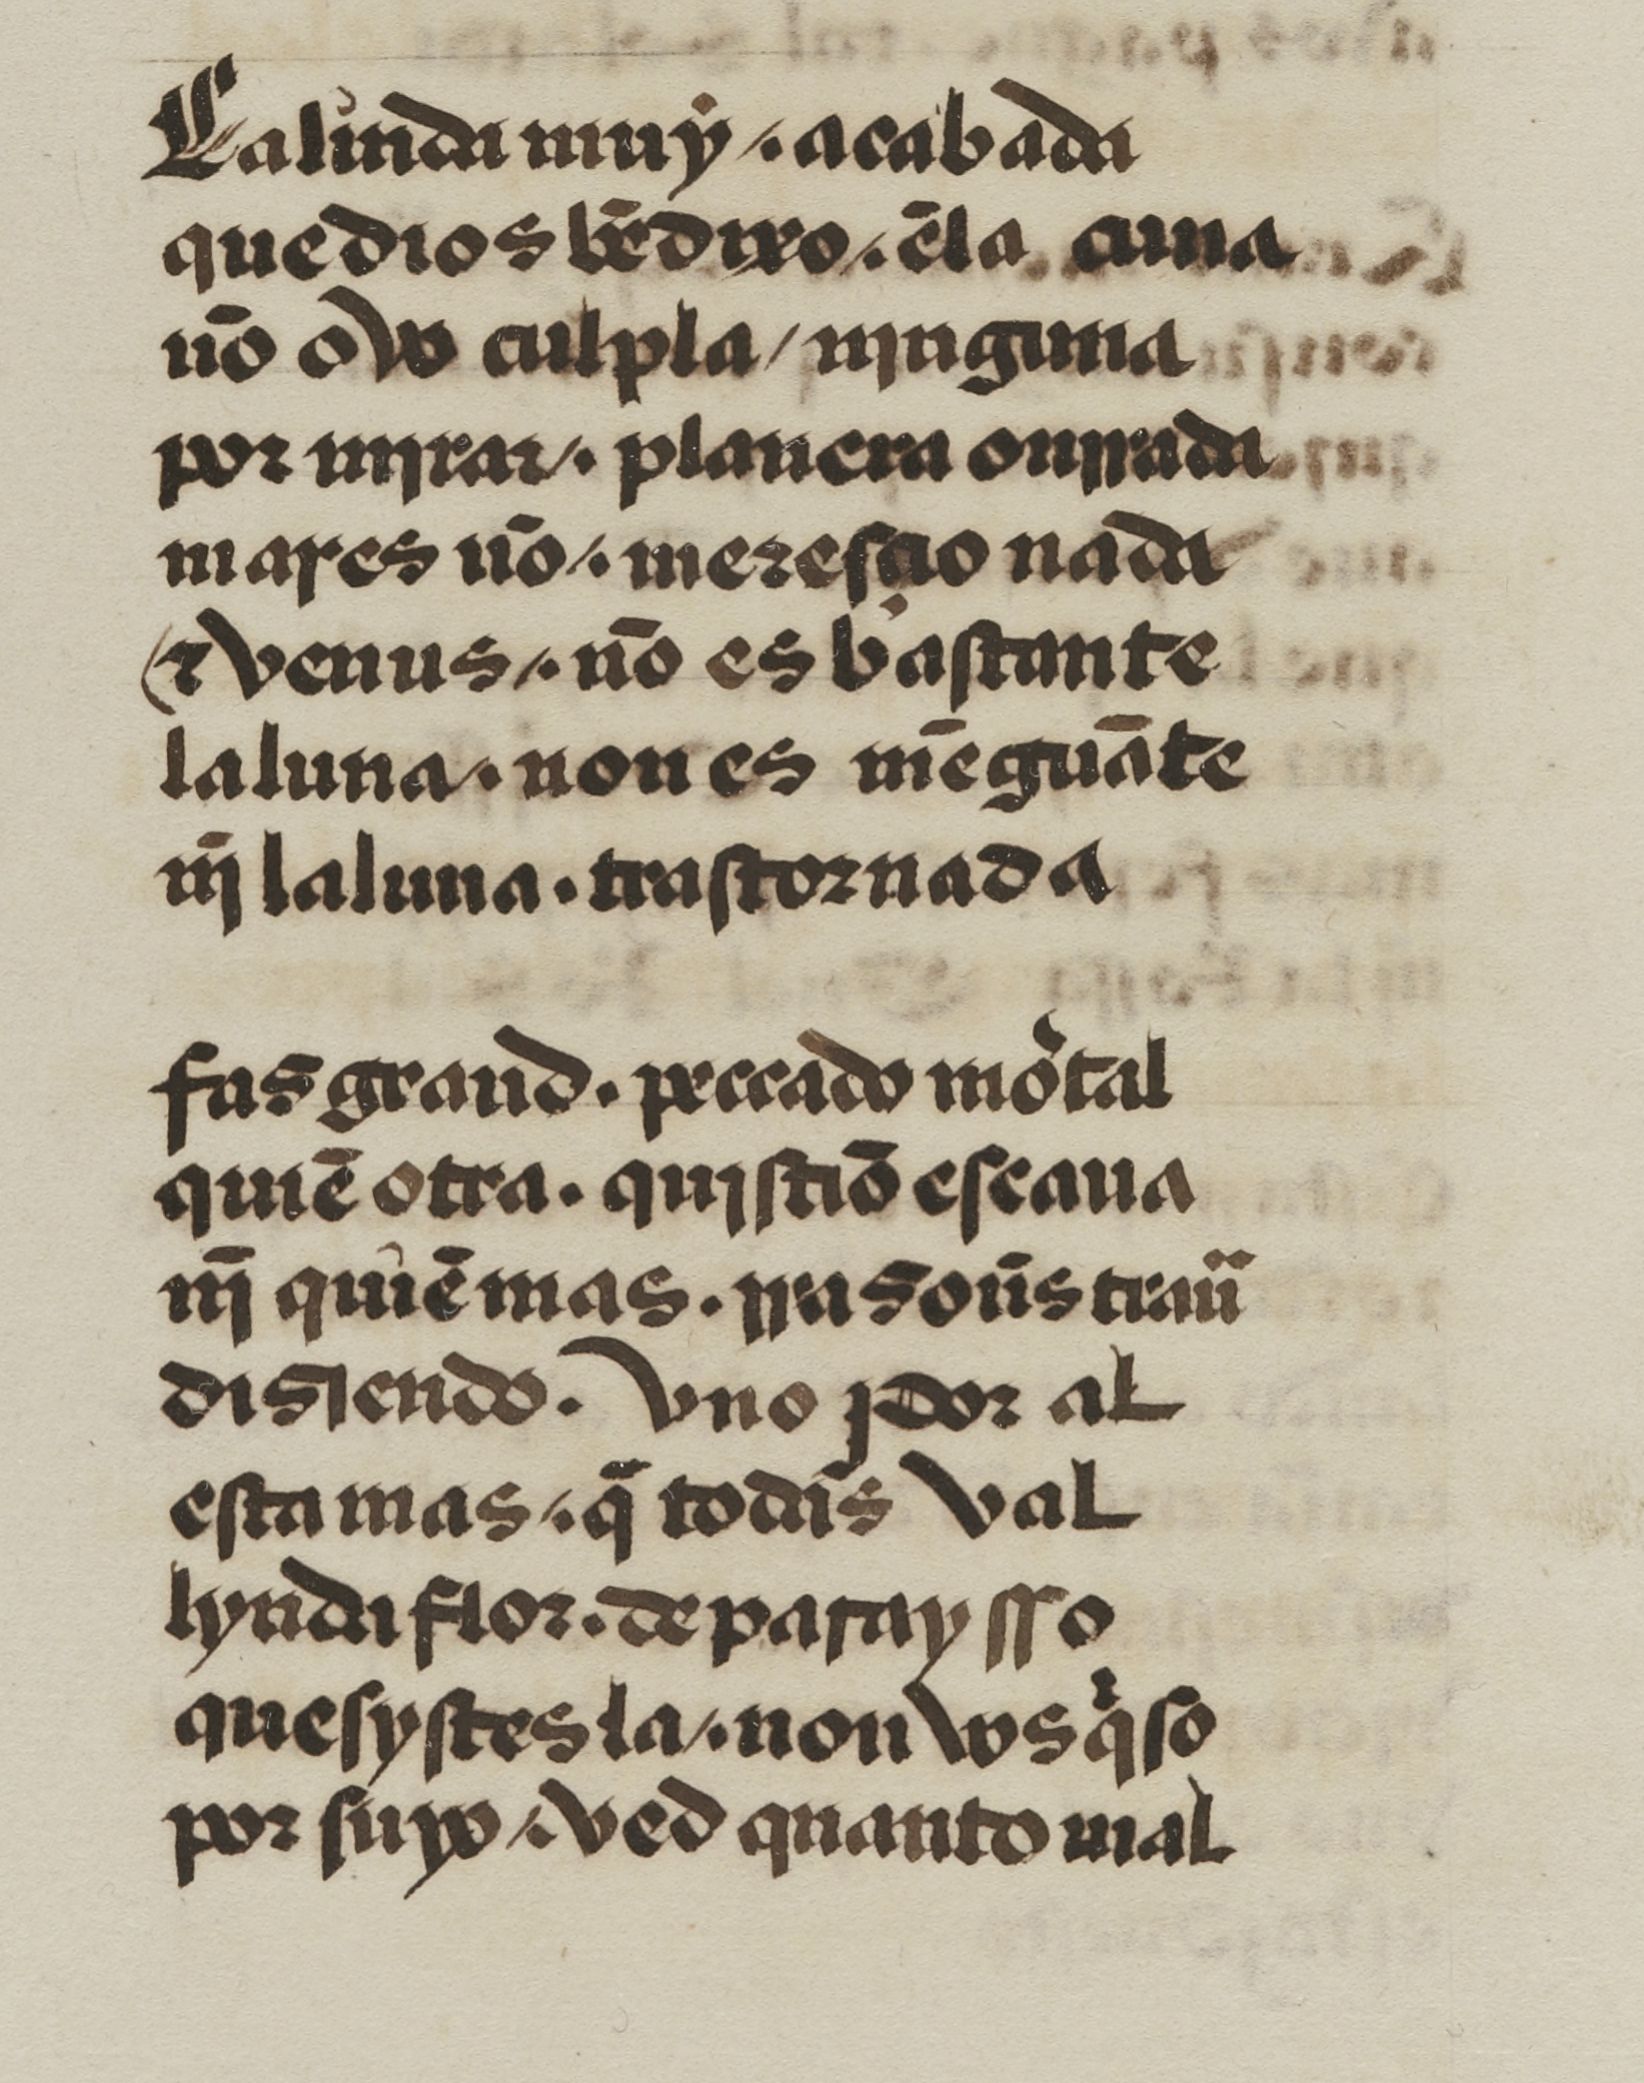 La linda muy /. acabada
que dios bēdixo /. ēla cuna
nō ovo culpla / njnguna
por mjrar /. planera onrrada
mares nō /. meresçio nada
& venus /. nō es bastante
la luna /. non es mēguāte
nj̄ la luna . trastornada
fas grand . peccado mortal
quiē otra . quistiō escaua
nj̄ quiē mas . rrasoñs traua
disiendo . vno por al
esta mas /. q̄ todas val
lynda flor . de paraysso
quesystes la /. non vos qiso
por suyo /. ved quanto mal